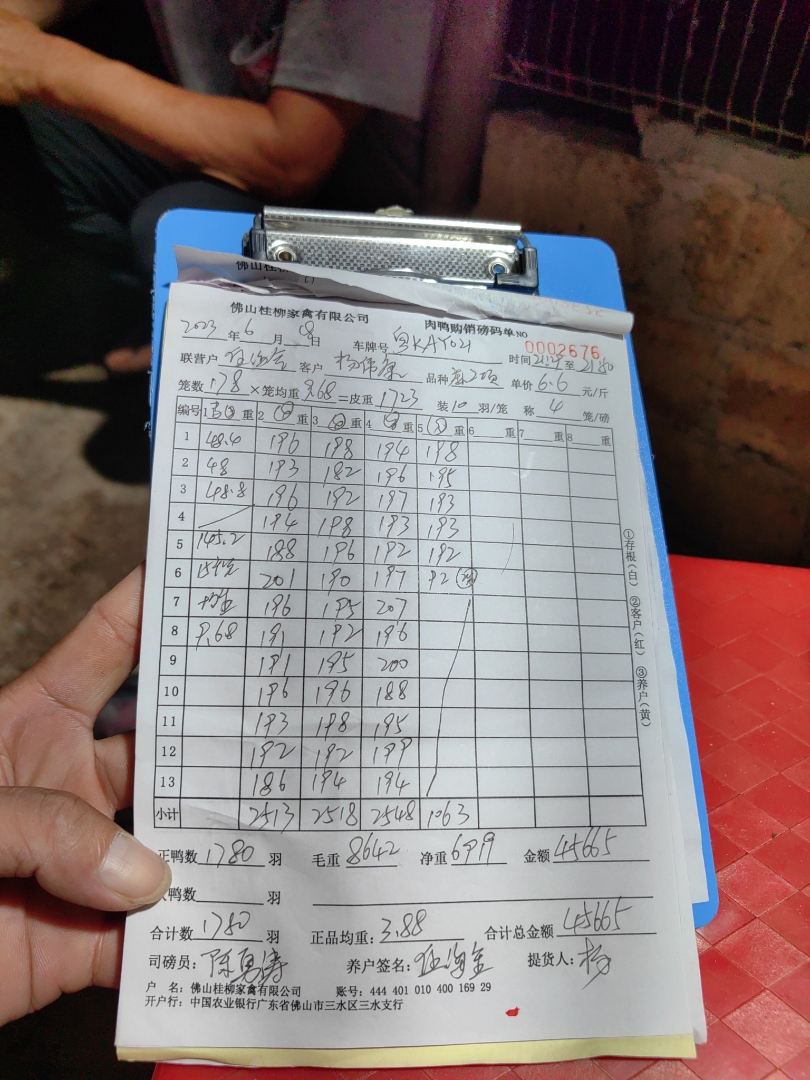 佛山桂柳
佛山桂柳家禽有限公司 肉鸭购销磅码单 NO 0002676
2023 年 6 月 08 日 车牌号 粤KAY021
联营户 客户 杨伟 品种 时间 至
笼数 178 ×笼均重 9.68 =皮重 1723 装 10 羽/笼 称 4 笼/磅 单价 6.6 元/斤
编号 1 重 2 重 3 重 4 重 5 重 6 重 7 重 8 重
1 48.4 196 198 194 198
2 48 193 182 196 195
3 48.8 196 192 197 193
4 194 198 193 193
5 145.2 188 196 192 192
6 15笼 201 190 197 92
7 均重 196 195 207
8 9.68 191 192 196
9 191 195 200
10 196 196 188
11 193 198 195
12 192 192 199
13 186 194 194
小计 2513 2518 2548 1063
正鸭数 1780 羽 毛重 8642 净重 6919 金额 45665
鸭数 羽
合计数 1780 羽 正品均重: 3.88 合计总金额 45665
司磅员: 陈勇涛 养户签名: 提货人: 杨
户 名: 佛山桂柳家禽有限公司 账号: 444 401 010 400 169 29
开户行: 中国农业银行广东省佛山市三水区三水支行
①存根(白) ②客户(红) ③养户(黄)